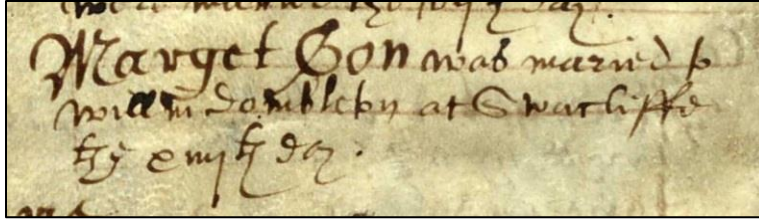 Marget Gon was maried to
willm dombleby at Swacliffe
the xiiijth day.